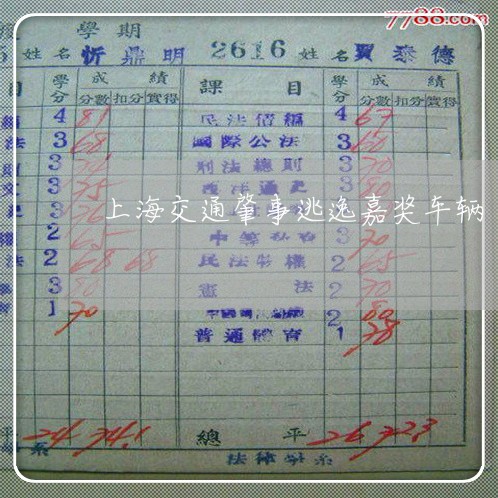 學期
姓名 忻鼎明 2616 姓名 賈泰德
目 學分 成績 課目 學分 成績
分數 扣分 實得 分數 扣分 實得
4 81 民法債編 4 67
法 3 68 國際公法 3 60
3 刑法總則 3 70
3 75 3 80
3 76 3
上海交通肇事逃逸嘉奖车辆
2 65 3 70
法 2 68 68 民法物權 2 65
3 80 憲法 2 70
1 70 2 80
普通體育 1 78
平 24 74.1 總平 26 72.3
系 法律學系
7788.com